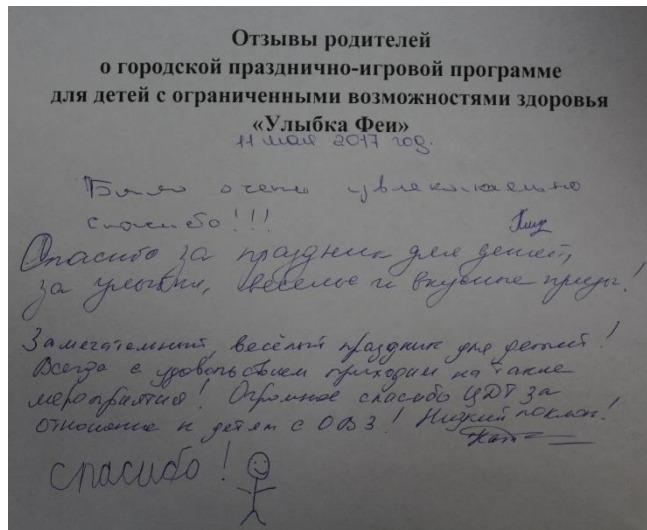 Отзывы родителей
о городской празднично-игровой программе
для детей с ограниченными возможностями здоровья
«Улыбка Феи»
11 мая 2017 год.
Было очень увлекательно
спасибо!!!
Спасибо за праздник для детей,
за улыбки, веселье и вкусные призы!
Замечательный, весёлый праздник для детей!
Всегда с удовольствием приходим на такие
мероприятия! Огромное спасибо ЦДТ за
отношение к детям с ОВЗ! Низкий поклон!
спасибо!